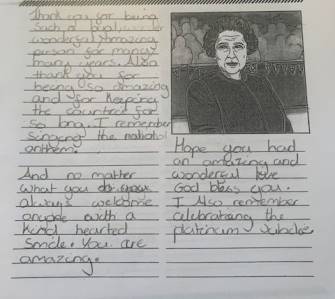 Thank you for being
such a
wonderful Amazing
person for many
many years. Also
thank you for
being so amazing
and for keeping
the countrie for
so long. I remember
singing the national
anthem.
And no matter
what you do your
always welcome
with a
kind hearted
smile. You are
amazing.
Hope you had
an amazing and
wonderful
God bless you.
I Also remember
celebrating the
platinum Jubilee.